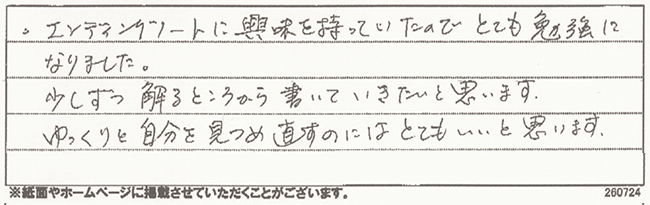 。エンディングノートに興味を持っていたのでとても勉強に
なりました。
少しずつ解るところから書いていきたいと思います.
ゆっくりと自分を見つめ直すのにはとてもいいと思います.
※紙面やホームページに掲載させていただくことがございます。
260724